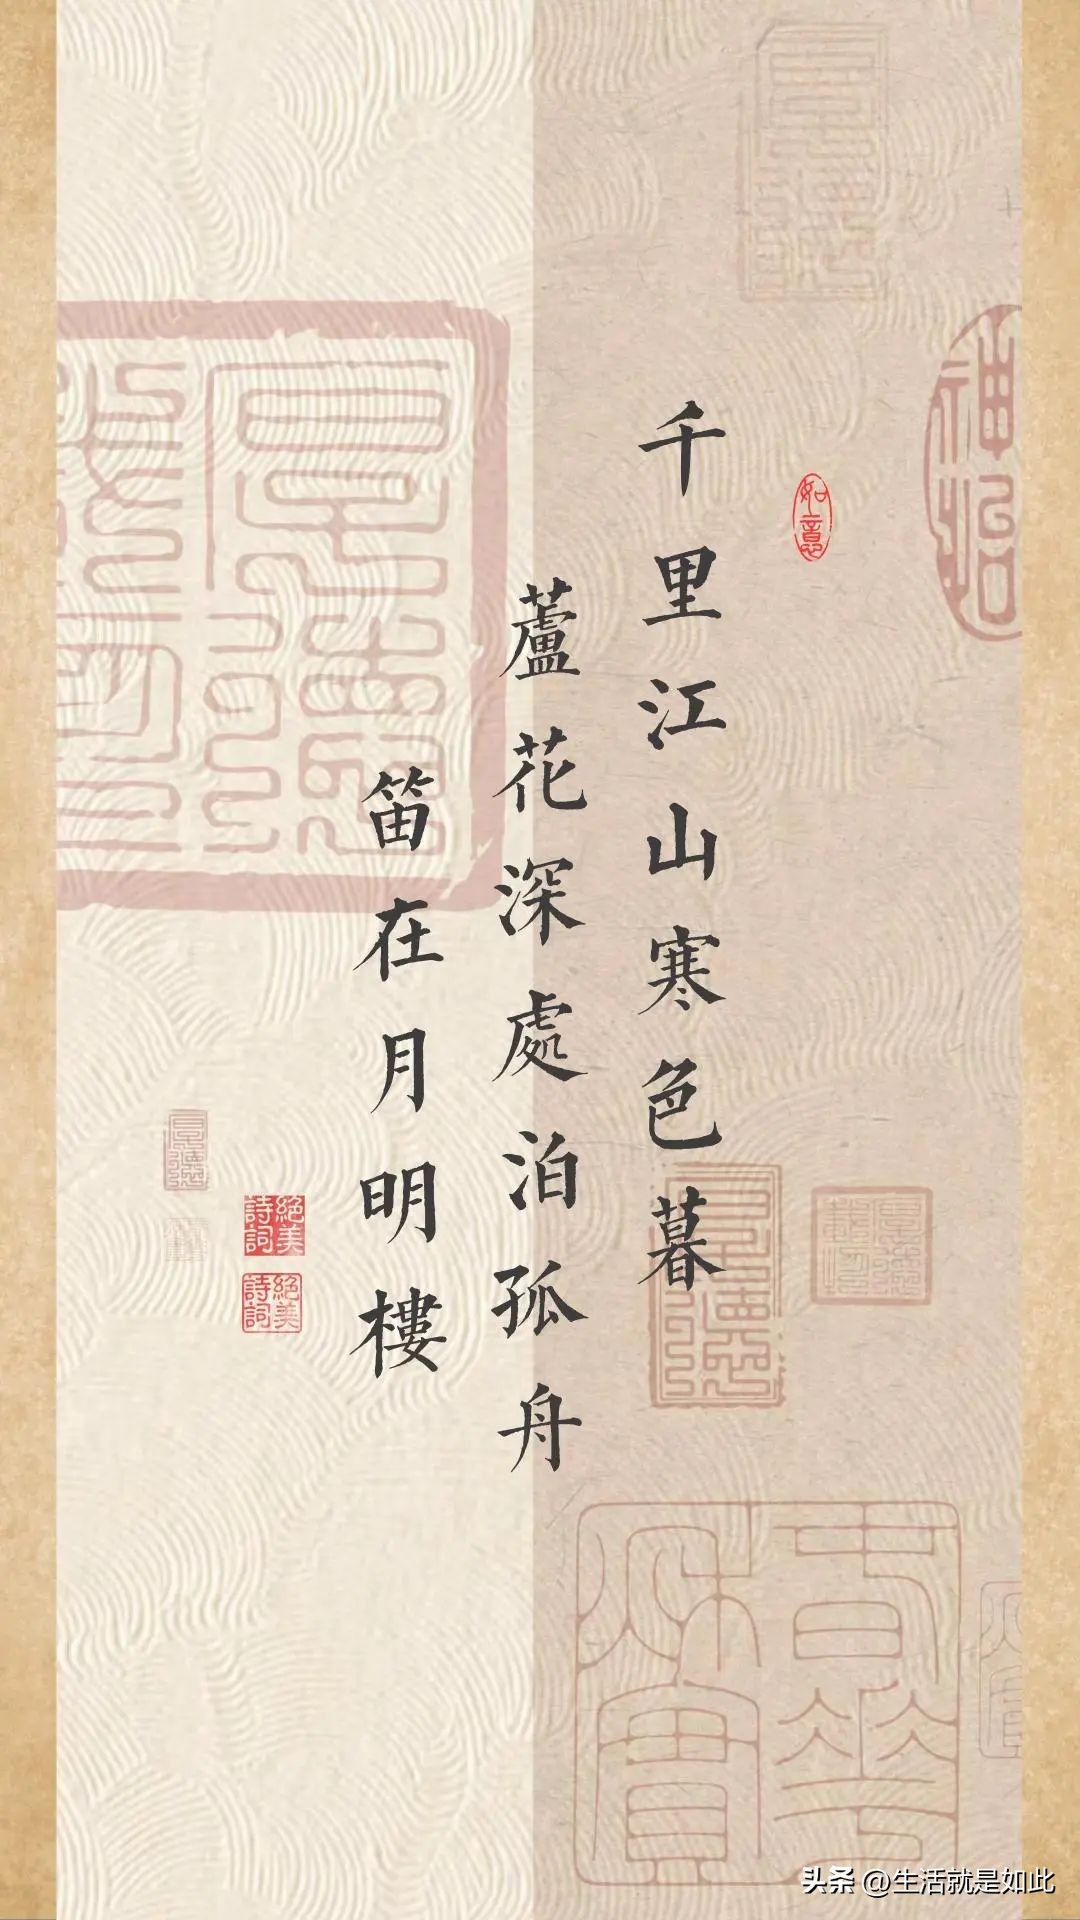 千里江山寒色暮
蘆花深處泊孤舟
笛在月明樓
如意
絕美詩詞
絕美詩詞
頭条 @生活就是如此